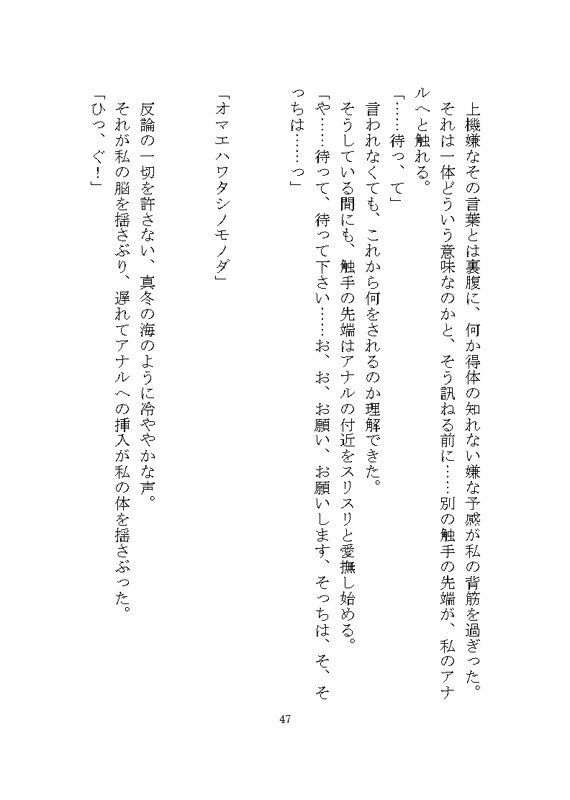 上機嫌なその言葉とは裏腹に、何か得体の知れない嫌な予感が私の背筋を過ぎった。
それは一体どういう意味なのかと、そう訊ねる前に……別の触手の先端が、私のアナ
ルへと触れる。
「……待っ、て」
言われなくても、これから何をされるのか理解できた。
そうしている間にも、触手の先端はアナルの付近をスリスリと愛撫し始める。
「や……待って、待って下さい……お、お、お願い、お願いします、そっちは、そ、そ
っちは……っ」
「オマエハワタシノモノダ」
反論の一切を許さない、真冬の海のように冷ややかな声。
それが私の脳を揺さぶり、遅れてアナルへの挿入が私の体を揺さぶった。
「ひっ、ぐ！」
47